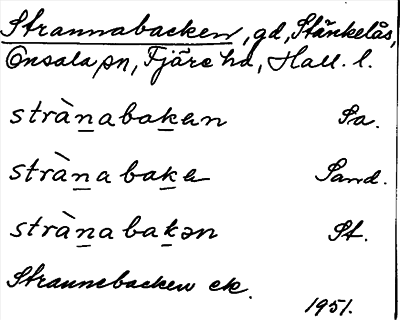 Strannabacken, gd, Stänkelås,
Onsala sn, Fjäre hd, Hall. l.
strànabakan Sa.
strànabaka Sand.
strànabakən St.
Strannebacken ek.
1951.